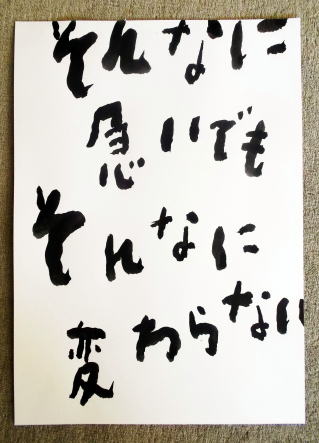 そんなに
急いでも
そんなに
変わらない